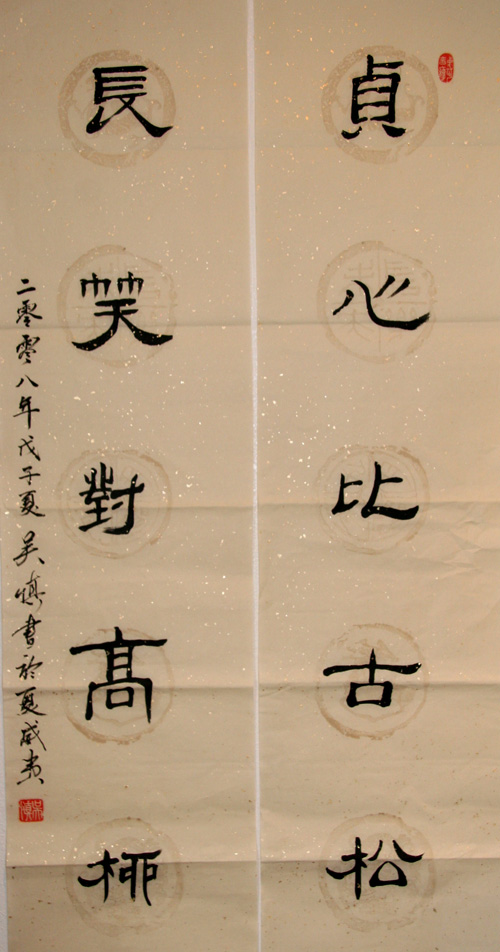 貞心比古松
長笑對高柳
二零零八年戊子夏吳慎書於夏威夷